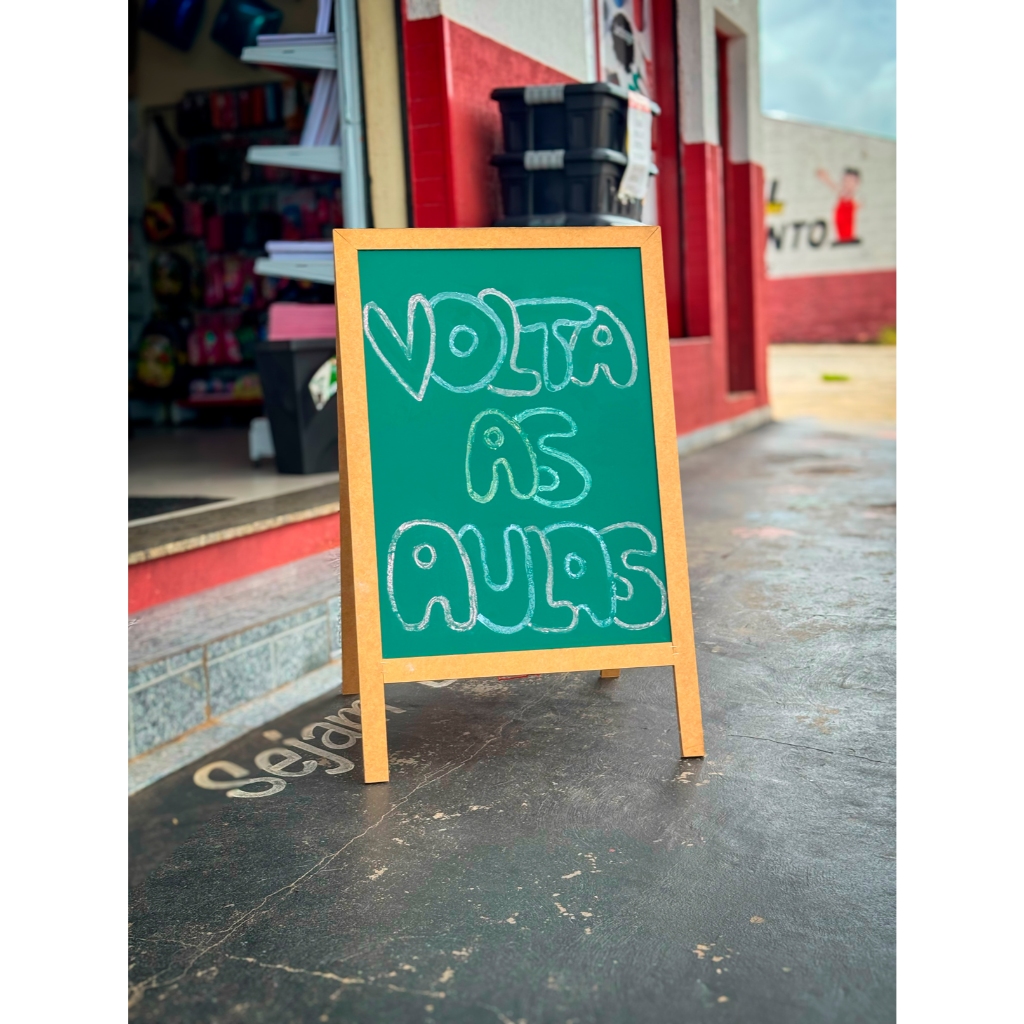 VOLTA
AS
AULAS
Sejam
NTO